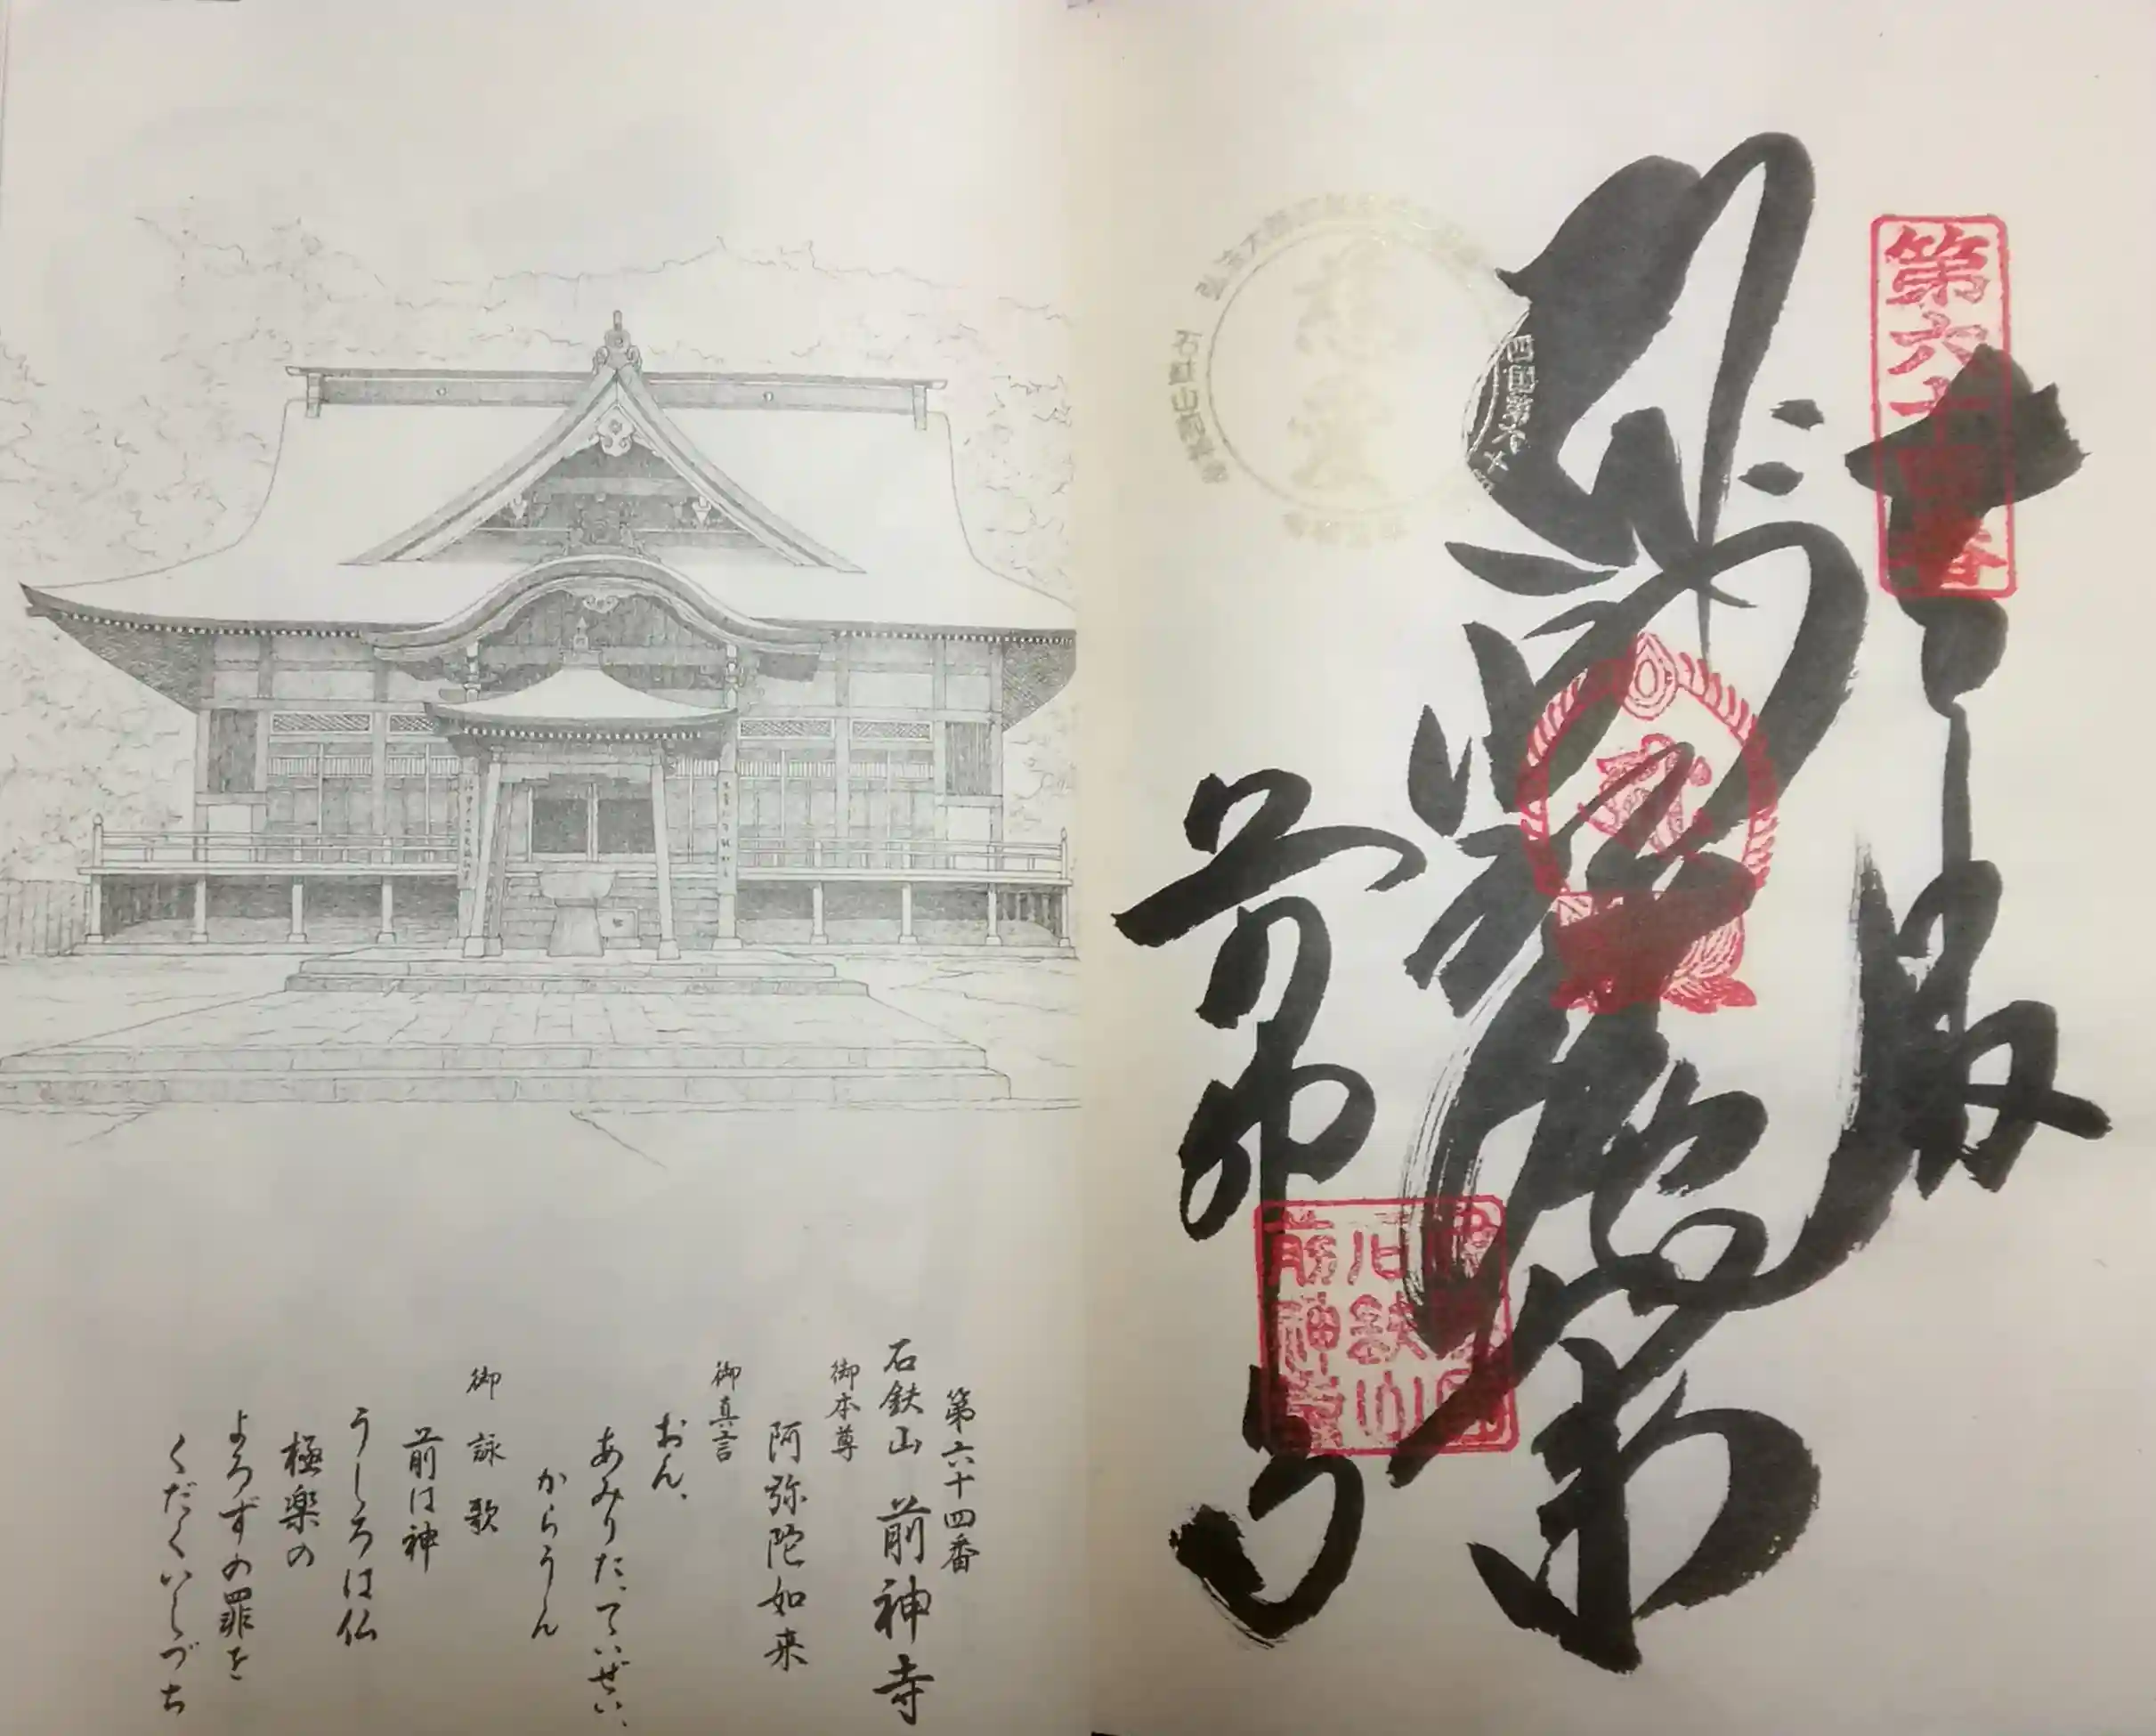 第六十四番
奉
阿弥陀如来
前神寺
石鉄山
前神寺
第六十四番
石鉄山 前神寺
御本尊
阿弥陀如来
御真言
おん、
あみりた、ていぜい、
からうん
御詠歌
前は神
うしろは仏
極楽の
よろずの罪を
くだくいしづち